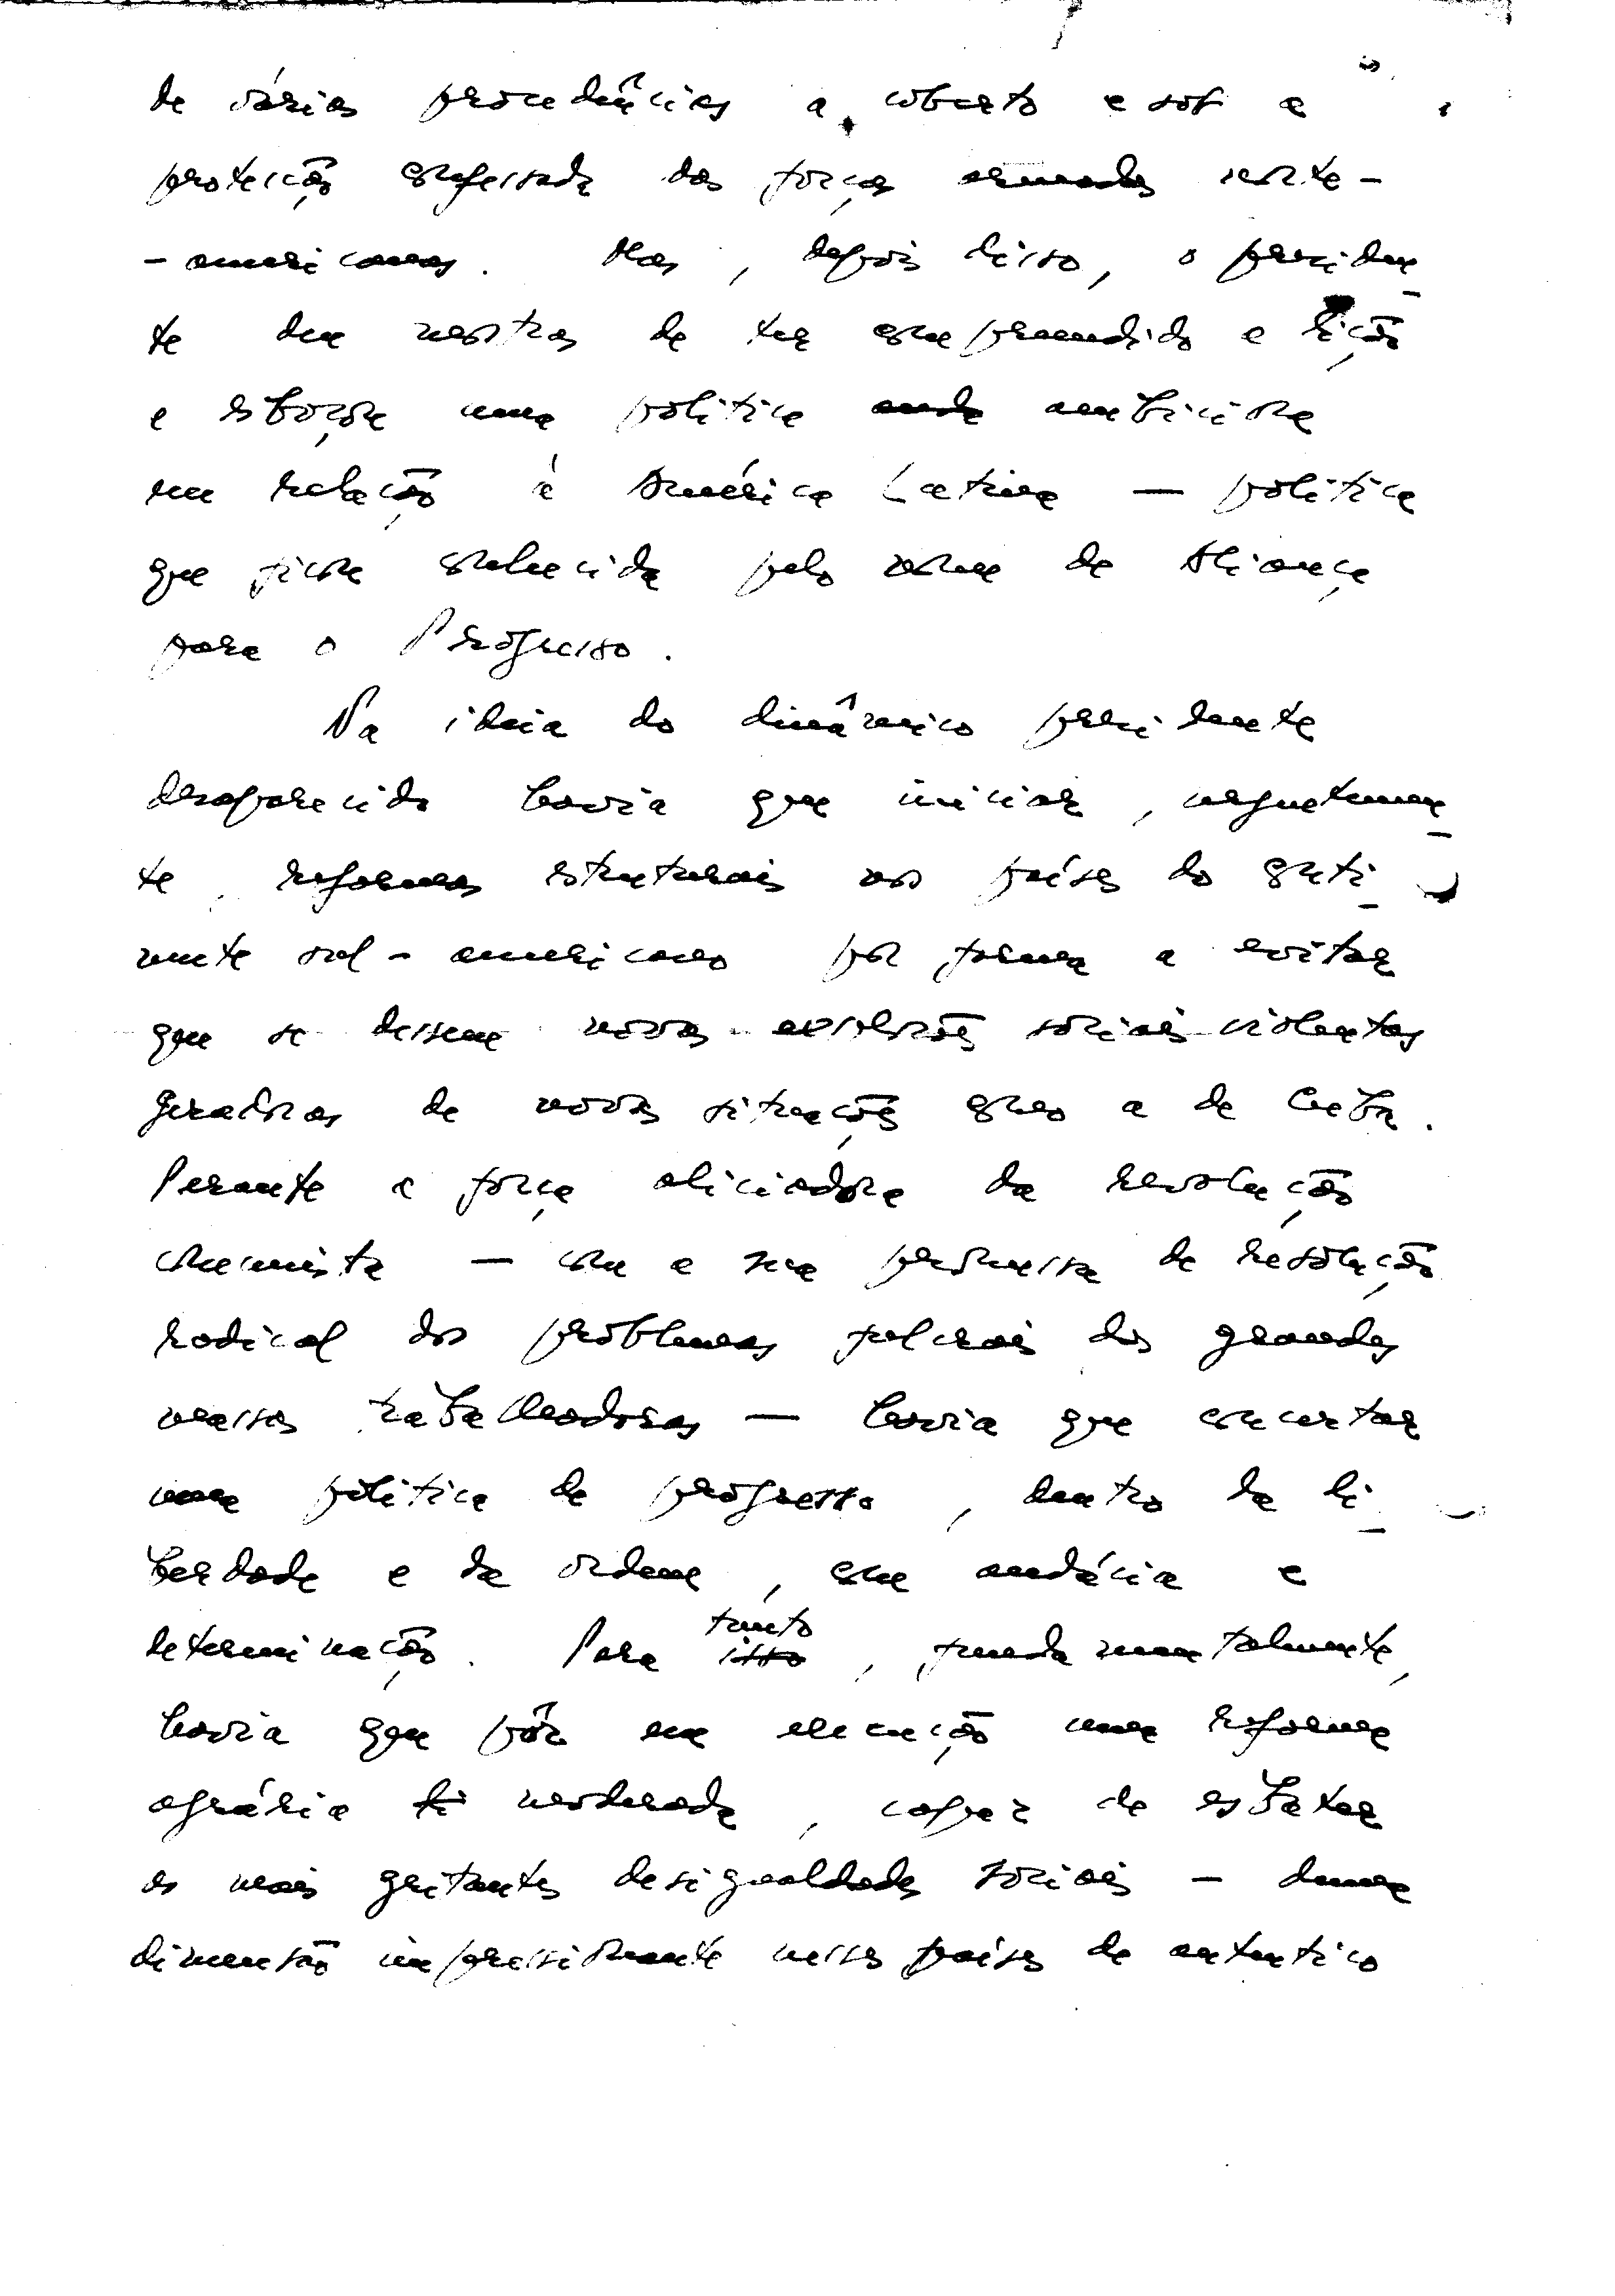 de várias procedências a coberto e sob a
proteição confessada das forças armadas norte-
-americanas. Mas, depois disso, o presiden_
te deu mostras de ter compreendido a lição
e esboçou uma política ambiciosa
em relação à América Latina — política
que ficou conhecida pelo nome de Aliança
para o Progresso.
Na ideia do dinâmico presidente
desaparecido havia que iniciar, urgentemen_
te, reformas estruturais nos países do conti_
nente sul-americano por forma a evitar
que se dessem novas explosões sociais violentas
geradoras de novas situações como a de Cuba.
Perante a força aliciadora da revolução
comunista — com a sua promessa de resolução
radical dos problemas fulcrais das grandes
massas trabalhadoras — havia que encontrar
uma política de progresso, dentro da li_
berdade e da ordem, com audácia e
determinação. Para tanto isso, fundamentalmente,
havia que pôr em execução uma reforma
agrária moderada, capaz de esbater
as mais gritantes desigualdades sociais - duma
dimensão impressionante nesses países de autentico